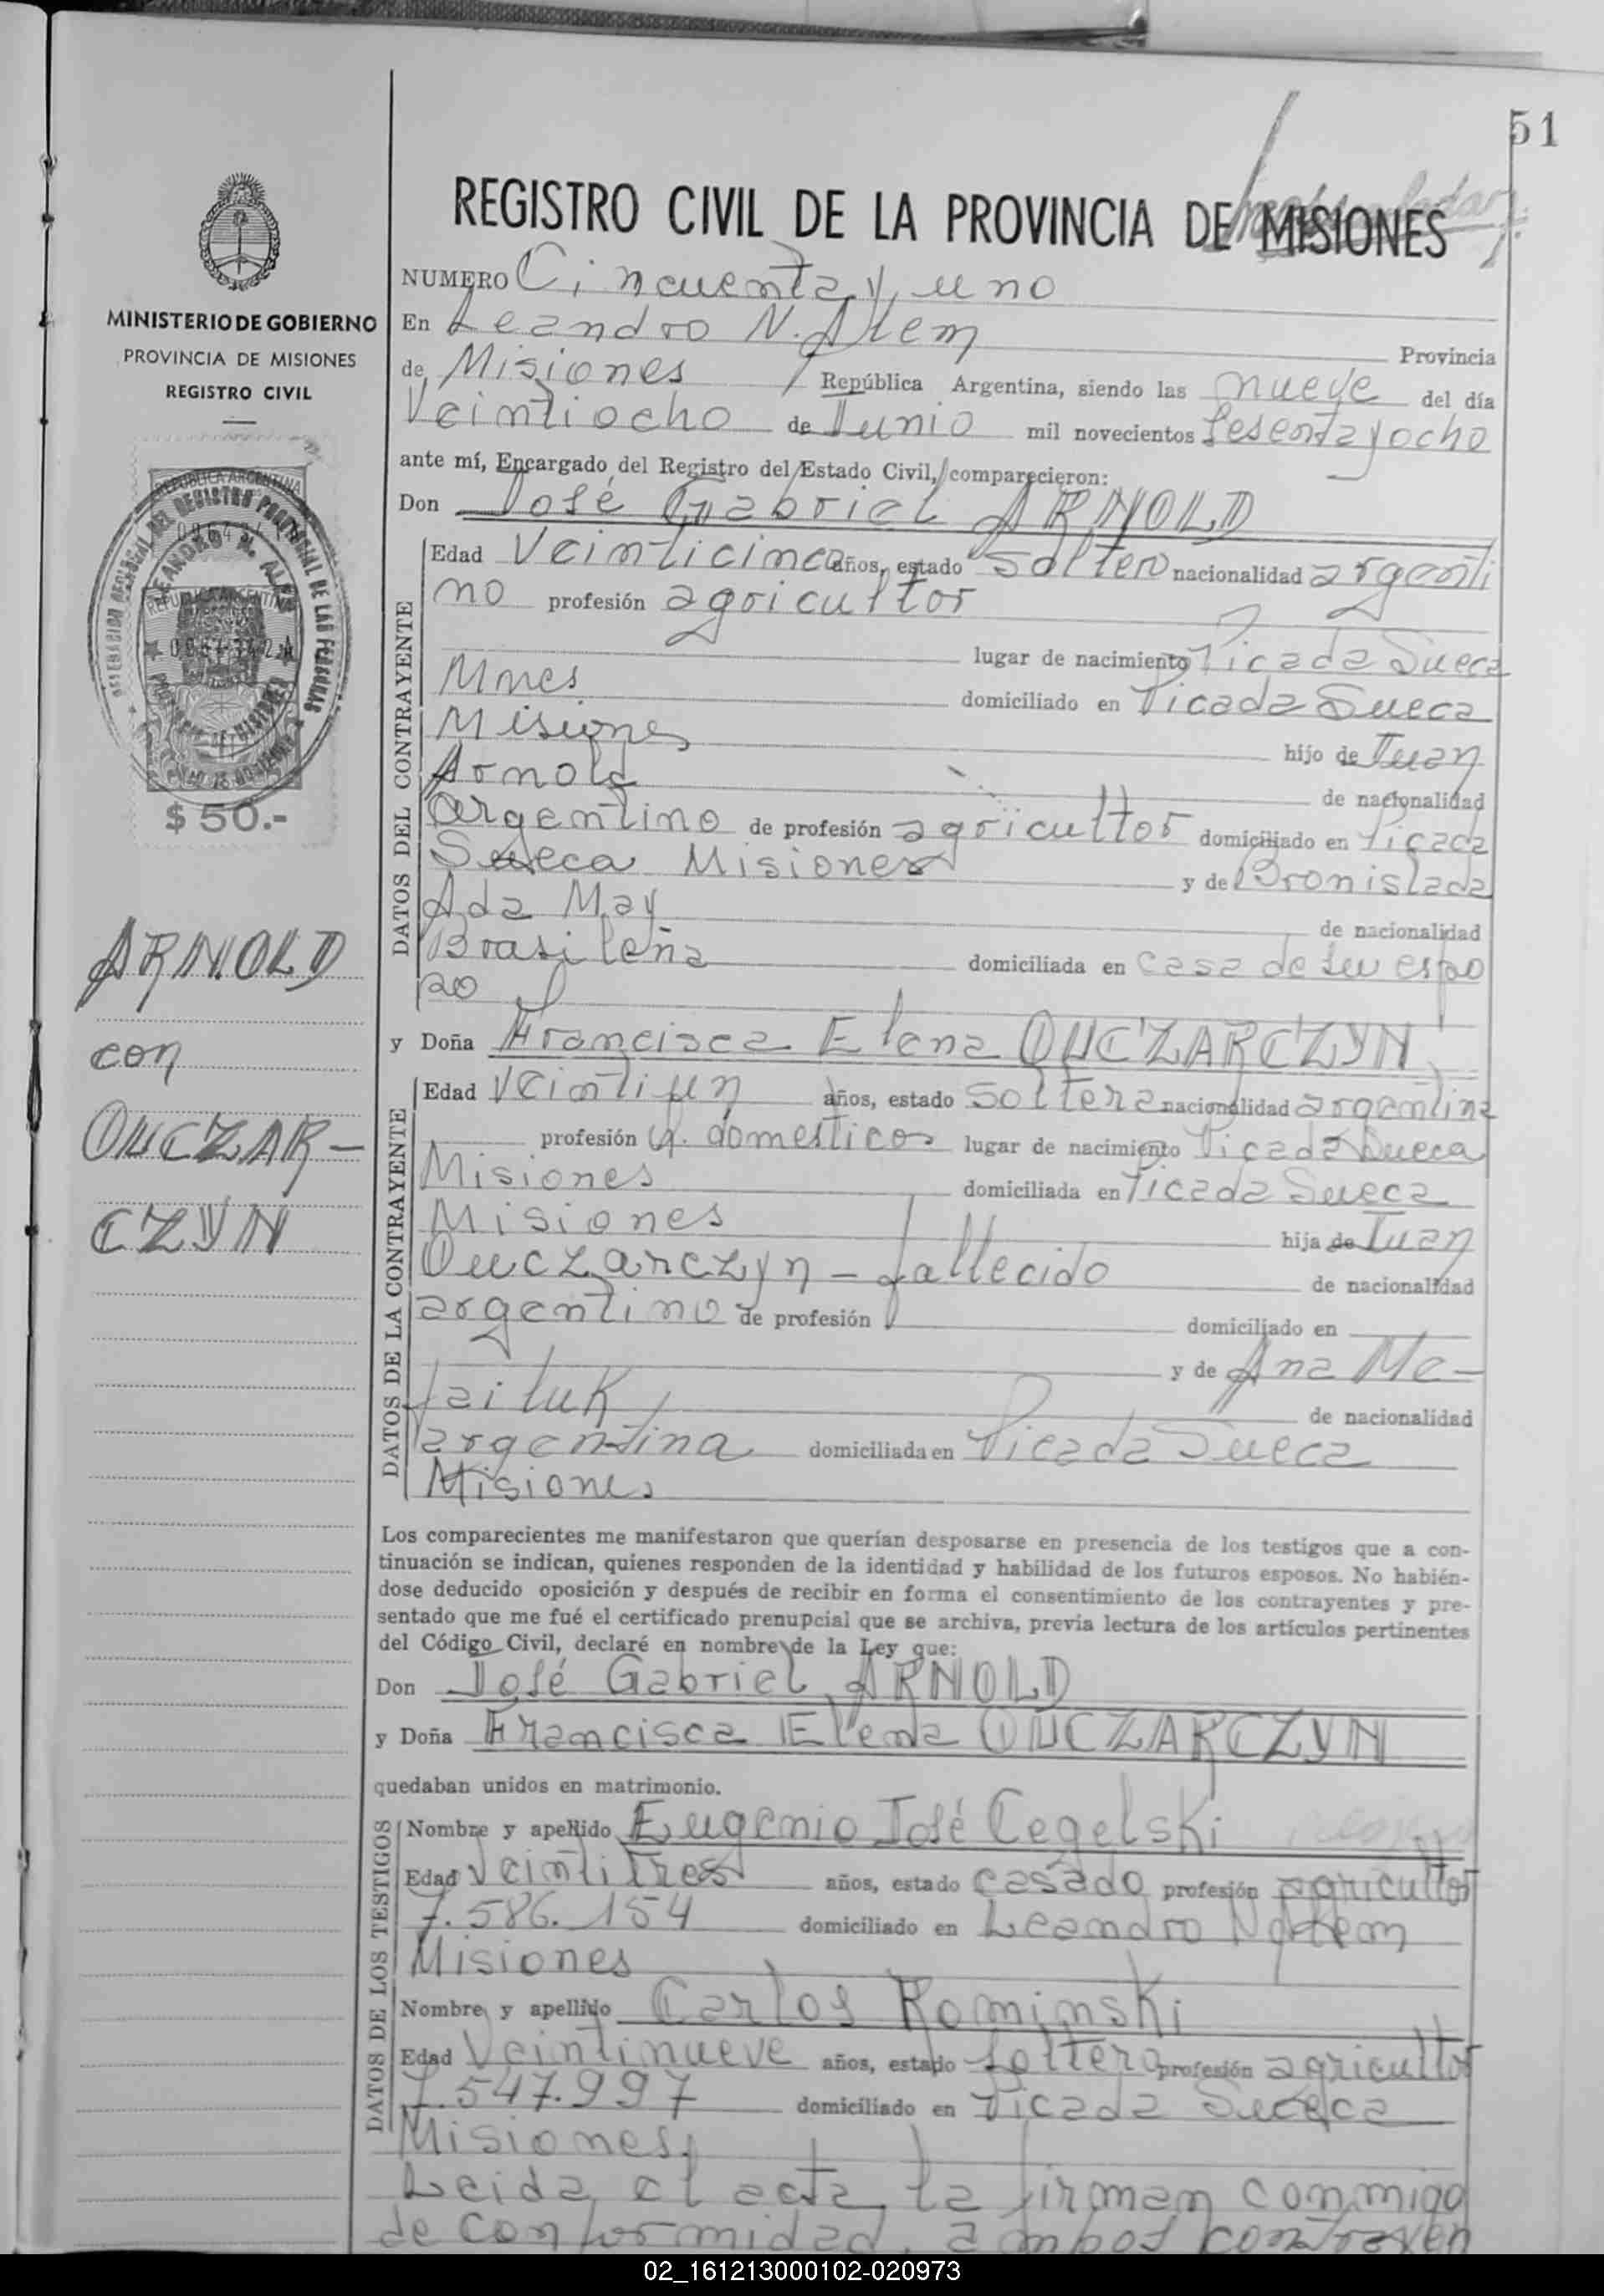 51
REGISTRO CIVIL DE LA PROVINCIA DE MISIONES
MINISTERIO DE GOBIERNO
PROVINCIA DE MISIONES
REGISTRO CIVIL
REPUBLICA ARGENTINA
$ 50.-
ARNOLD
con
OUCZAR-
CZYN
NUMERO Cincuenta y uno
En Leandro N. Alem Provincia
de Misiones República Argentina, siendo las nueve del día
Veintiocho de Junio mil novecientos sesenta y ocho
ante mí, Encargado del Registro del Estado Civil, comparecieron:
Don José Gabriel ARNOLD
DATOS DEL CONTRAYENTE
Edad Veinticinco años, estado soltero nacionalidad argenti
no profesión agricultor
lugar de nacimiento Picada Sueca
Mnes domiciliado en Picada Sueca
Misiones hijo de Juan
Arnold de nacionalidad
argentino de profesión agricultor domiciliado en Picada
Sueca Misiones y de Bronislada
Ada May de nacionalidad
Brasileña domiciliada en casa de su espo
so
y Doña Francisca Elena OUCZARCZYN
DATOS DE LA CONTRAYENTE
Edad Veintiun años, estado soltera nacionalidad argentina
profesión q. domesticos lugar de nacimiento Picada Sueca
Misiones domiciliada en Picada Sueca
Misiones hija de Juan
Ouczarczyn - fallecido de nacionalidad
argentino de profesión domiciliado en
y de Ana Me-
jailuk de nacionalidad
argentina domiciliada en Picada Sueca
Misiones
Los comparecientes me manifestaron que querían desposarse en presencia de los testigos que a con-
tinuación se indican, quienes responden de la identidad y habilidad de los futuros esposos. No habién-
dose deducido oposición y después de recibir en forma el consentimiento de los contrayentes y pre-
sentado que me fué el certificado prenupcial que se archiva, previa lectura de los artículos pertinentes
del Código Civil, declaré en nombre de la Ley que:
Don José Gabriel ARNOLD
y Doña Francisca Elena OUCZARCZYN
quedaban unidos en matrimonio.
DATOS DE LOS TESTIGOS
Nombre y apellido Eugenio José Cegelski
Edad Veintitres años, estado casado profesión agricultor
7.586.154 domiciliado en Leandro N Alem
Misiones
Nombre y apellido Carlos Rominski
Edad Veintinueve años, estado soltero profesión agricultor
7.547.997 domiciliado en Picada Sueca
Misiones
Leida el acta la firman conmigo
de conformidad, ambos contrayen
02_161213000102-020973